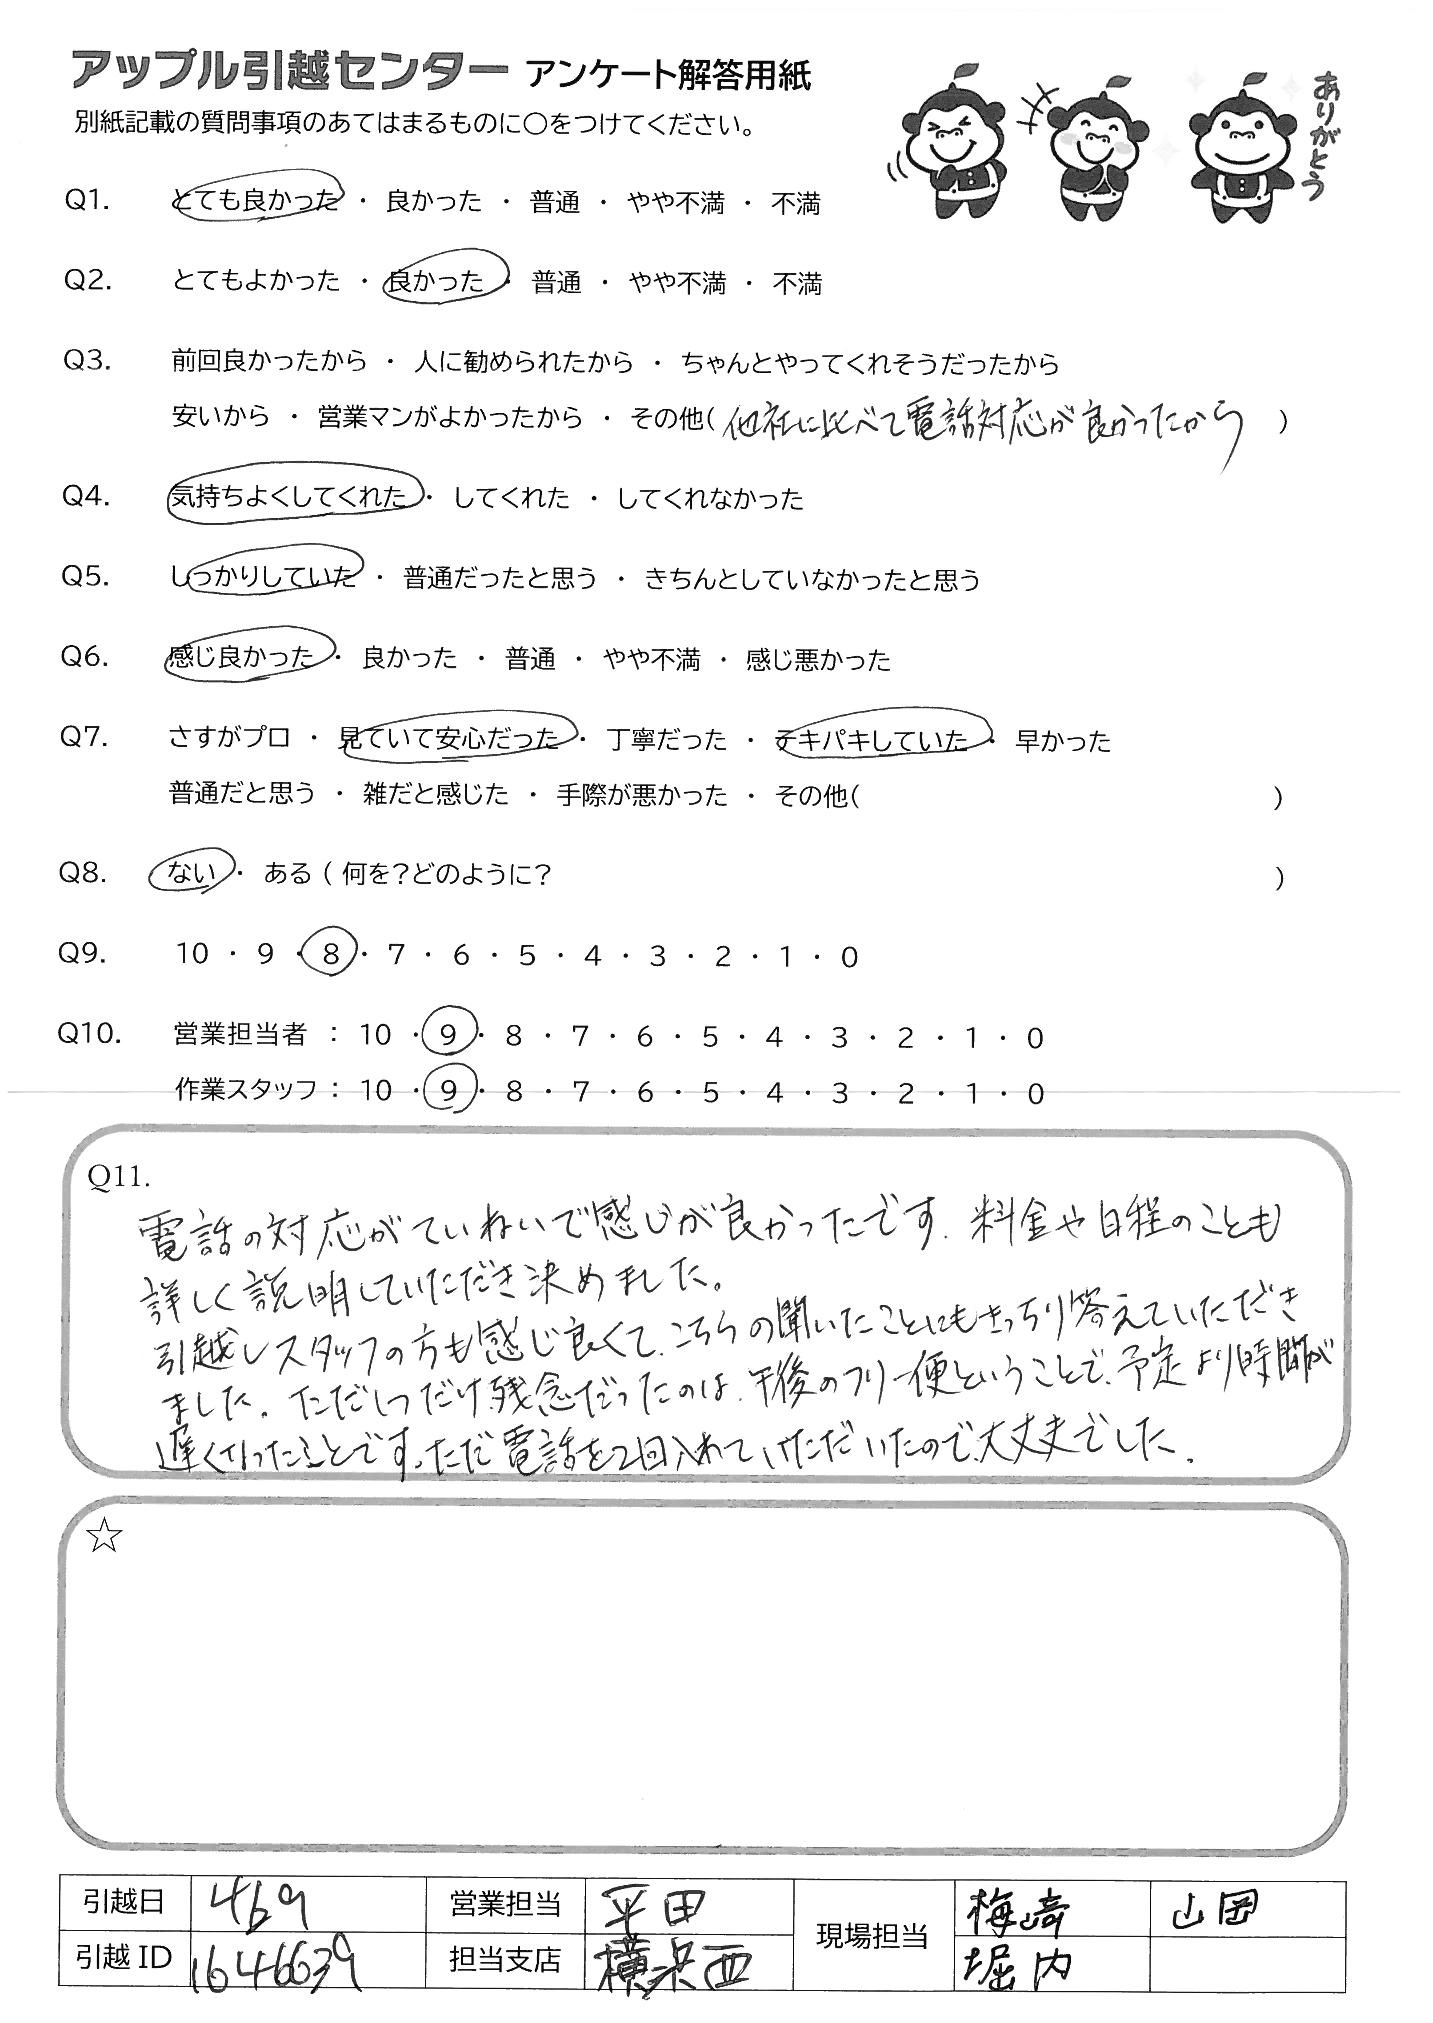 アップル引越センター アンケート解答用紙
別紙記載の質問事項のあてはまるものに○をつけてください。
ありがとう
Q1. とても良かった ・ 良かった ・ 普通 ・ やや不満 ・ 不満
Q2. とてもよかった ・ 良かった ・ 普通 ・ やや不満 ・ 不満
Q3. 前回良かったから ・ 人に勧められたから ・ ちゃんとやってくれそうだったから
安いから ・ 営業マンがよかったから ・ その他( 他社に比べて電話対応が良かったから )
Q4. 気持ちよくしてくれた ・ してくれた ・ してくれなかった
Q5. しっかりしていた ・ 普通だったと思う ・ きちんとしていなかったと思う
Q6. 感じ良かった ・ 良かった ・ 普通 ・ やや不満 ・ 感じ悪かった
Q7. さすがプロ ・ 見ていて安心だった ・ 丁寧だった ・ テキパキしていた ・ 早かった
普通だと思う ・ 雑だと感じた ・ 手際が悪かった ・ その他( )
Q8. ない ・ ある ( 何を?どのように? )
Q9. 10 ・ 9 ・ 8 ・ 7 ・ 6 ・ 5 ・ 4 ・ 3 ・ 2 ・ 1 ・ 0
Q10. 営業担当者 : 10 ・ 9 ・ 8 ・ 7 ・ 6 ・ 5 ・ 4 ・ 3 ・ 2 ・ 1 ・ 0
作業スタッフ : 10 ・ 9 ・ 8 ・ 7 ・ 6 ・ 5 ・ 4 ・ 3 ・ 2 ・ 1 ・ 0
Q11.
電話の対応がていねいで感じが良かったです、料金や日程のことも
詳しく説明していただき決めました。
引越しスタッフの方も感じ良くて、こちらの聞いたことにもきっちり答えていただき
ました。ただ1つだけ残念だったのは、午後のフリー便ということで、予定より時間が
遅くなったことです。ただ電話を2回入れていただいたので、大丈夫でした。
☆
引越日 469 営業担当 平田 現場担当 梅崎 山岡
引越ID 1646639 担当支店 横浜西 堀内